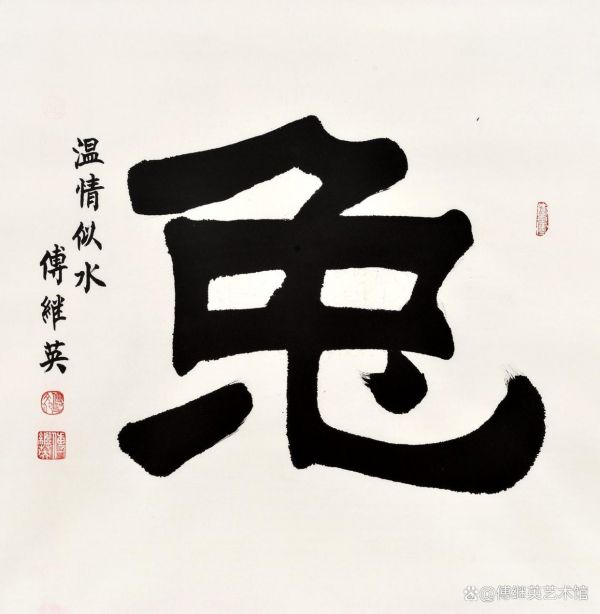 兔
温情似水
傅継英
@傅继英艺术馆